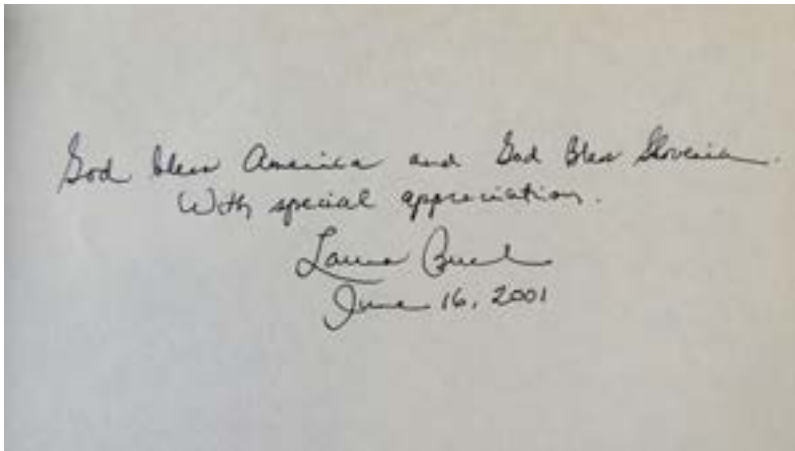 God bless America and God Bless Slovenia.
With special appreciation.
Laura Bush
June 16, 2001